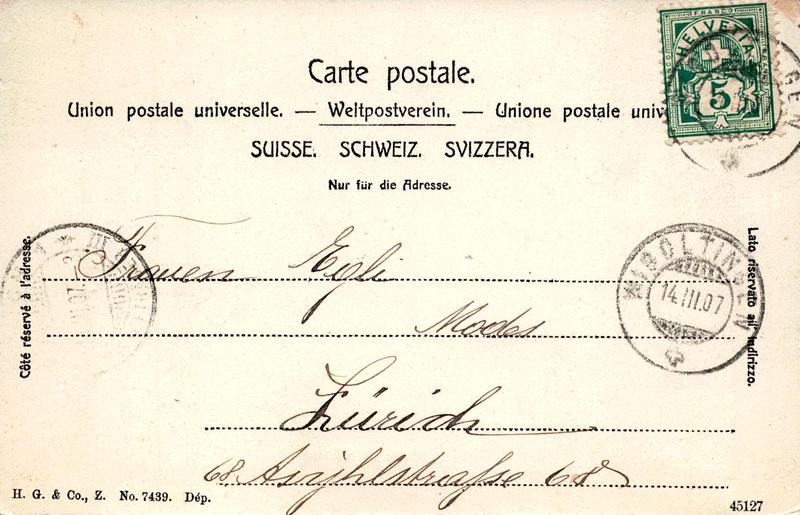 FRANCO
HELVETIA
5
Carte postale.
Union postale universelle. — Weltpostverein. — Unione postale univ
SUISSE. SCHWEIZ. SVIZZERA.
Nur für die Adresse.
Côté réservé à l'adresse.
Lato riservato all'indirizzo.
WIGOLTINGEN
14.III.07
Frauen Egli
Modes
Zürich
68 68
H. G. & Co., Z. No. 7439. Dép.
45127